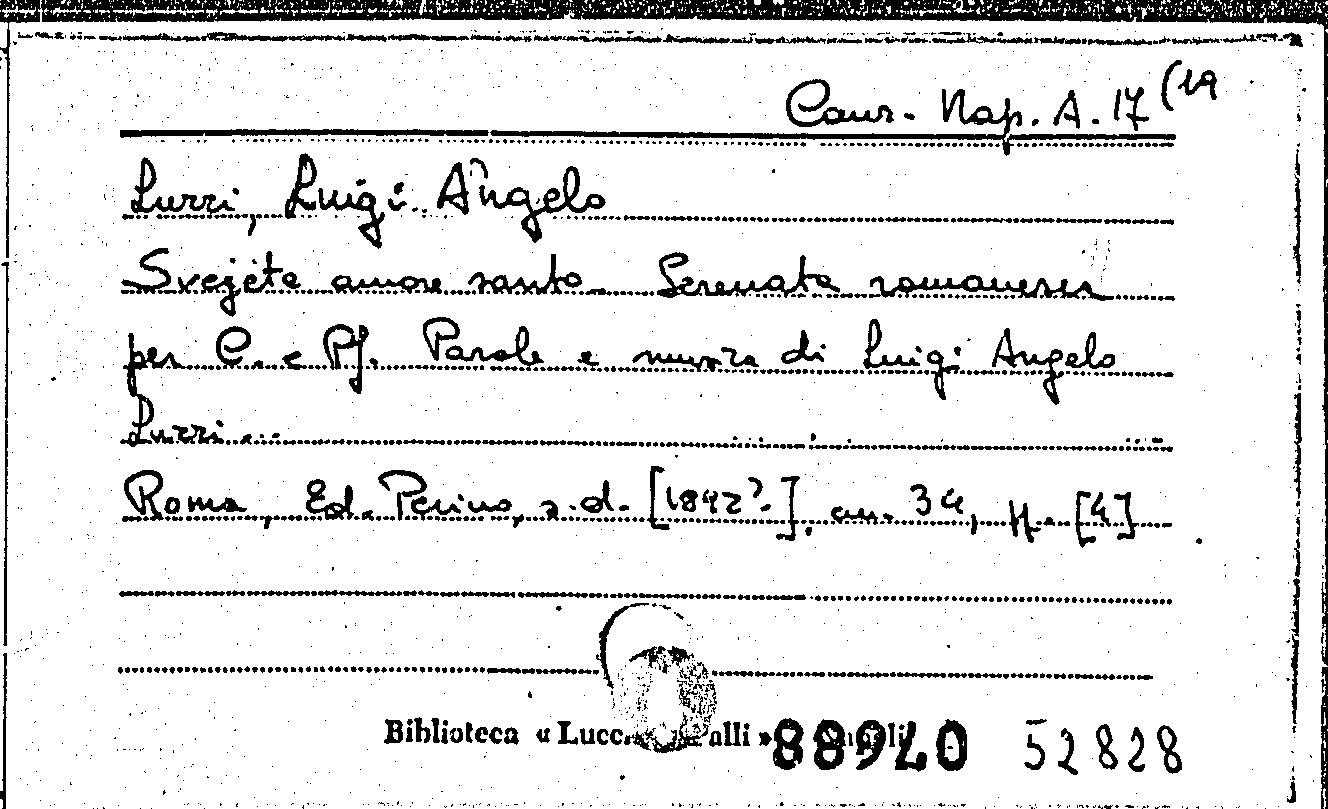 Canz. Nap. A. 17 (19
Luzzi, Luigi Angelo
Svejete amore santo. Serenata romanesca
per C. e Pf. Parole e musica di Luigi Angelo
Luzzi ...
Roma, Ed. Perino, s.d. [1892?]. cm. 34, pp. [4]
Biblioteca « Lucc alli »
88940 52828